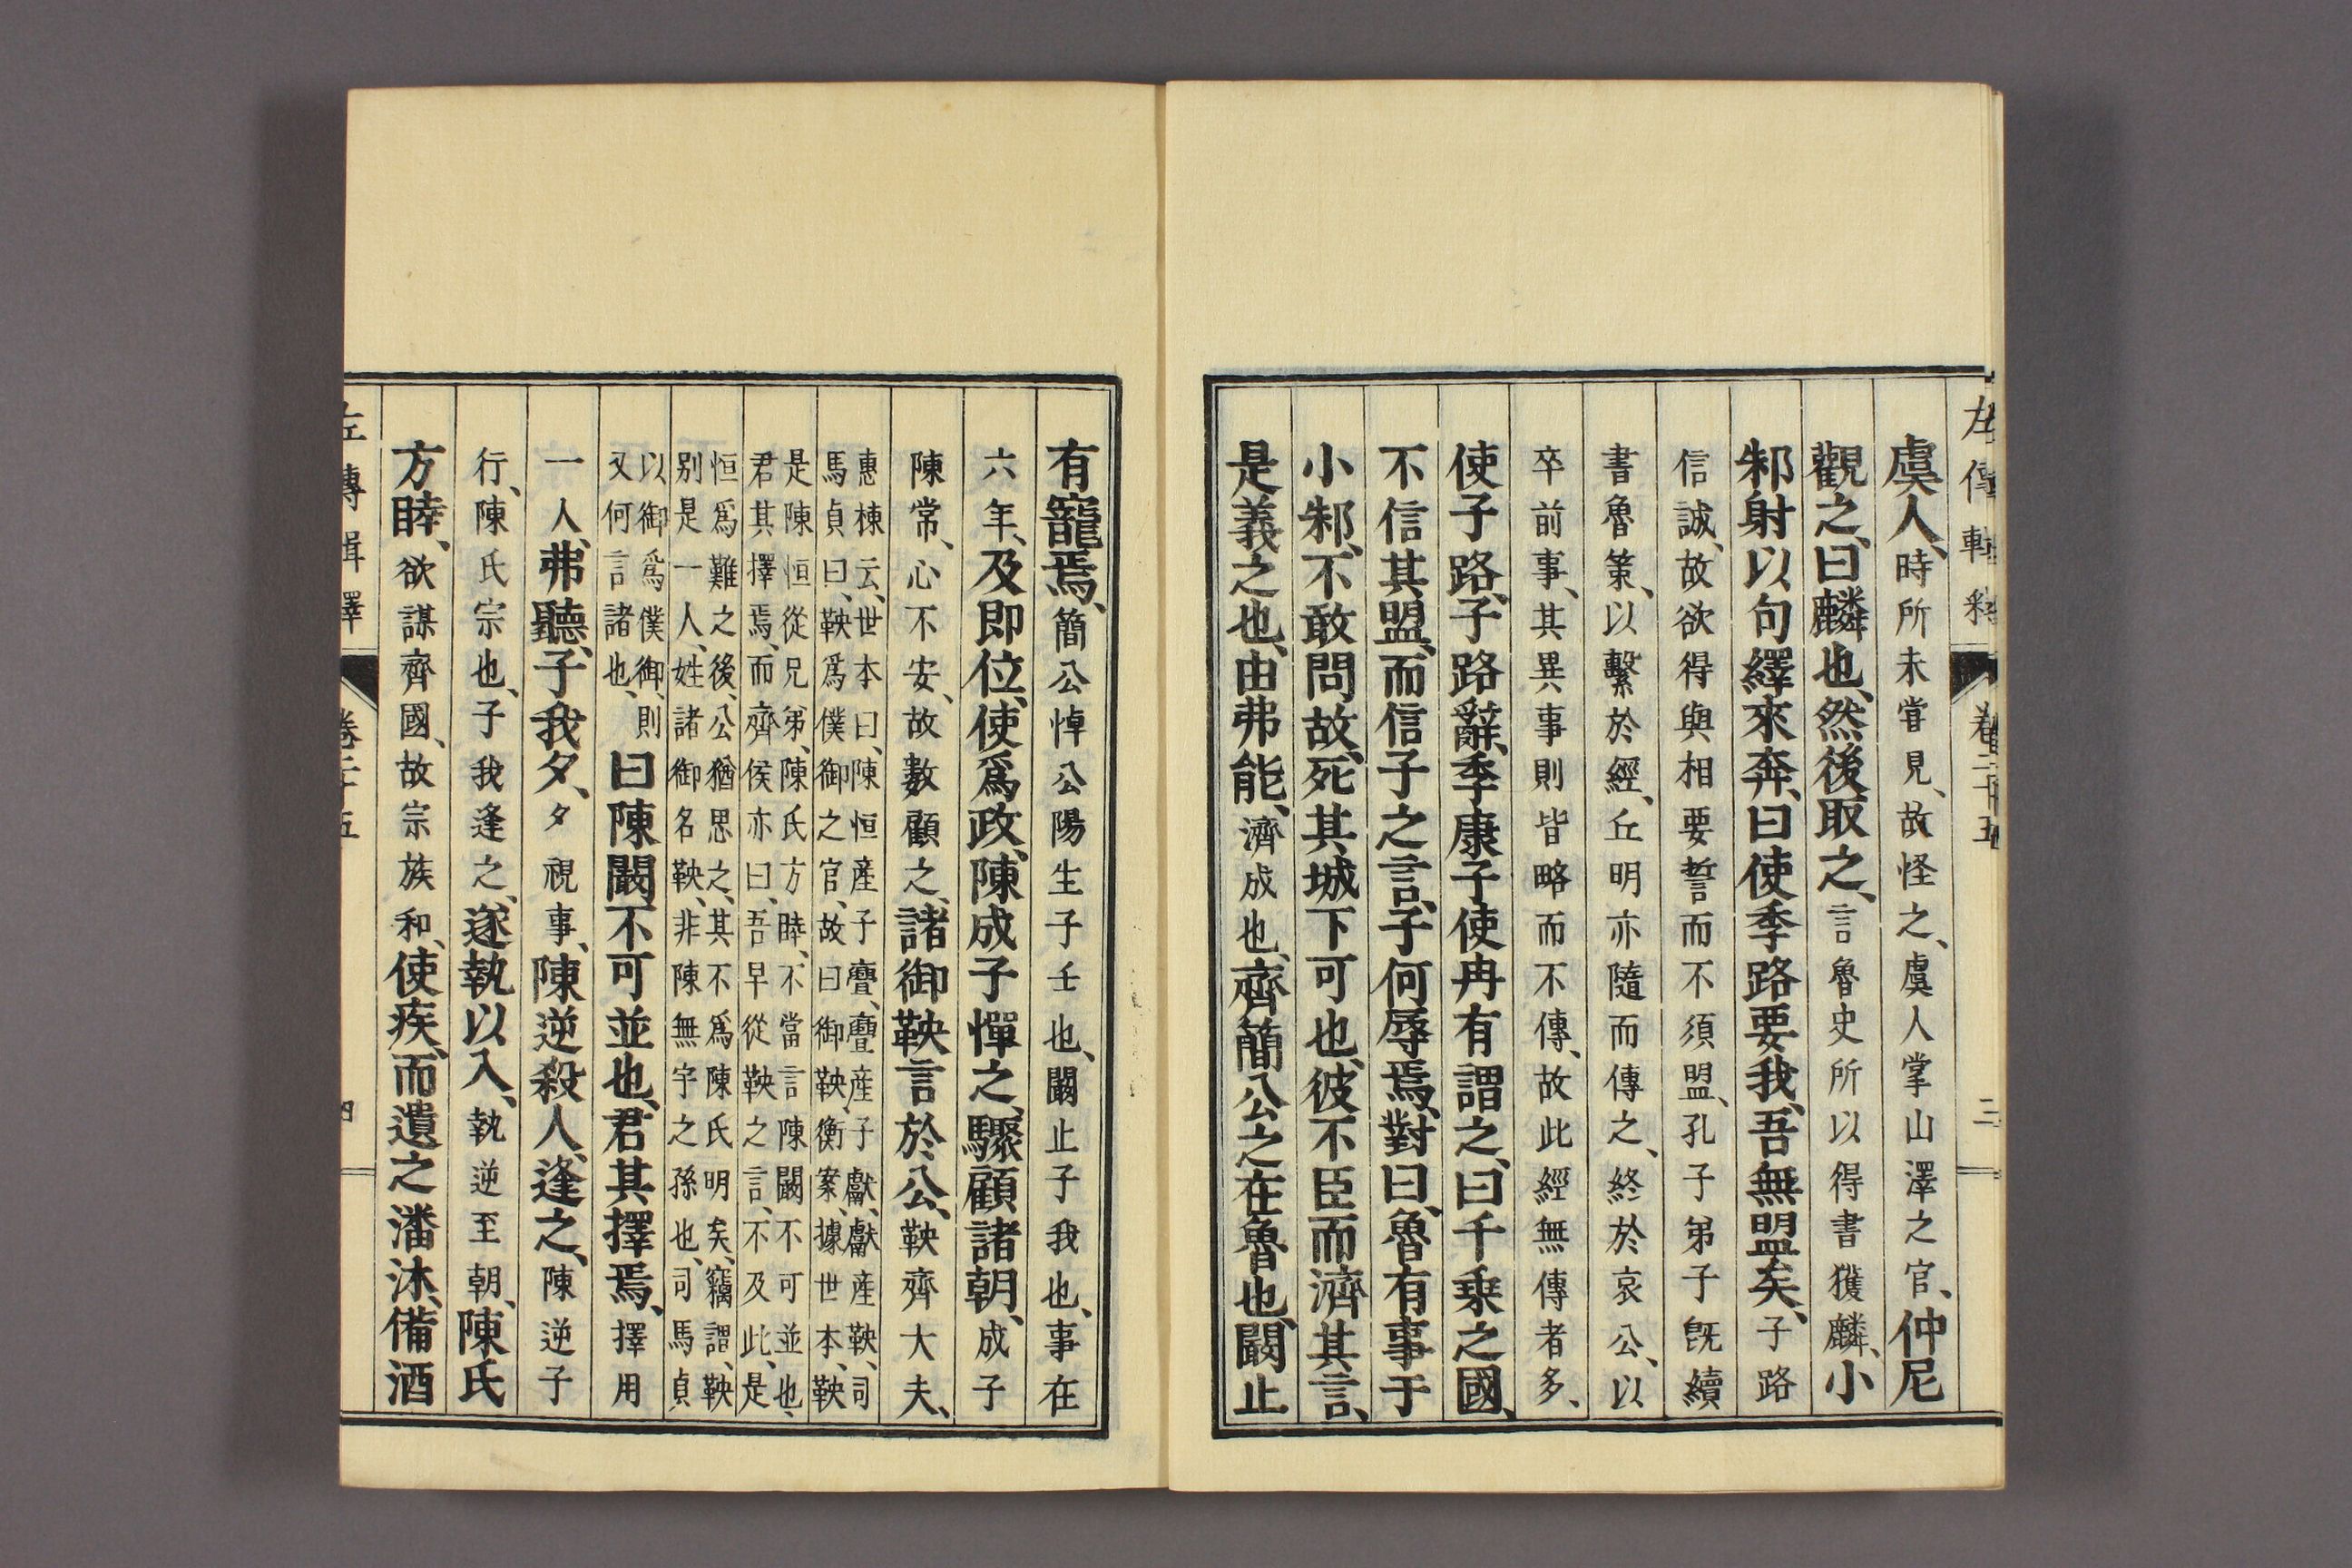 左傳輯釋 卷二十五 三
虞人、時所未嘗見、故怪之、虞人掌山澤之官、仲尼
觀之、曰麟也、然後取之、言魯史所以得書獲麟、小
邾射以句繹來奔、曰使季路要我、吾無盟矣、子路
信誠、故欲得與相要誓而不須盟、孔子弟子既續
書魯策、以繫於經、丘明亦隨而傳之、終於哀公、以
卒前事、其異事則皆略而不傳、故此經無傳者多、
使子路、子路辭、季康子使冉有謂之、曰千乘之國、
不信其盟、而信子之言、子何辱焉、對曰、魯有事于
小邾、不敢問故、死其城下可也、彼不臣而濟其言、
是義之也、由弗能、濟成也、齊簡公之在魯也、闞止
有寵焉、簡公悼公陽生子壬也、闞止子我也、事在
六年、及即位、使爲政、陳成子憚之、驟顧諸朝、成子
陳常、心不安、故數顧之、諸御鞅言於公、鞅齊大夫、
惠棟云、世本曰、陳恒産子亹、亹産子獻、獻産鞅、司
馬貞曰、鞅爲僕御之官、故曰御鞅、衡案、據世本、鞅
是陳恒從兄弟、陳氏方睦、不當言陳闞不可並也、
君其擇焉、而齊侯亦曰、吾早從鞅之言、不及此、是
恒爲難之後、公猶思之、其不爲陳氏明矣、竊謂、鞅
別是一人、姓諸御名鞅、非陳無宇之孫也、司馬貞
以御爲僕御、則
又何言諸也、
曰陳闞不可並也、君其擇焉、擇用
一人、弗聽、子我夕、夕視事、陳逆殺人、逢之、陳逆子
行、陳氏宗也、子我逢之、遂執以入、執逆至朝、陳氏
方睦、欲謀齊國、故宗族和、使疾、而遺之潘沐、備酒
左傳輯釋 卷二十五 四